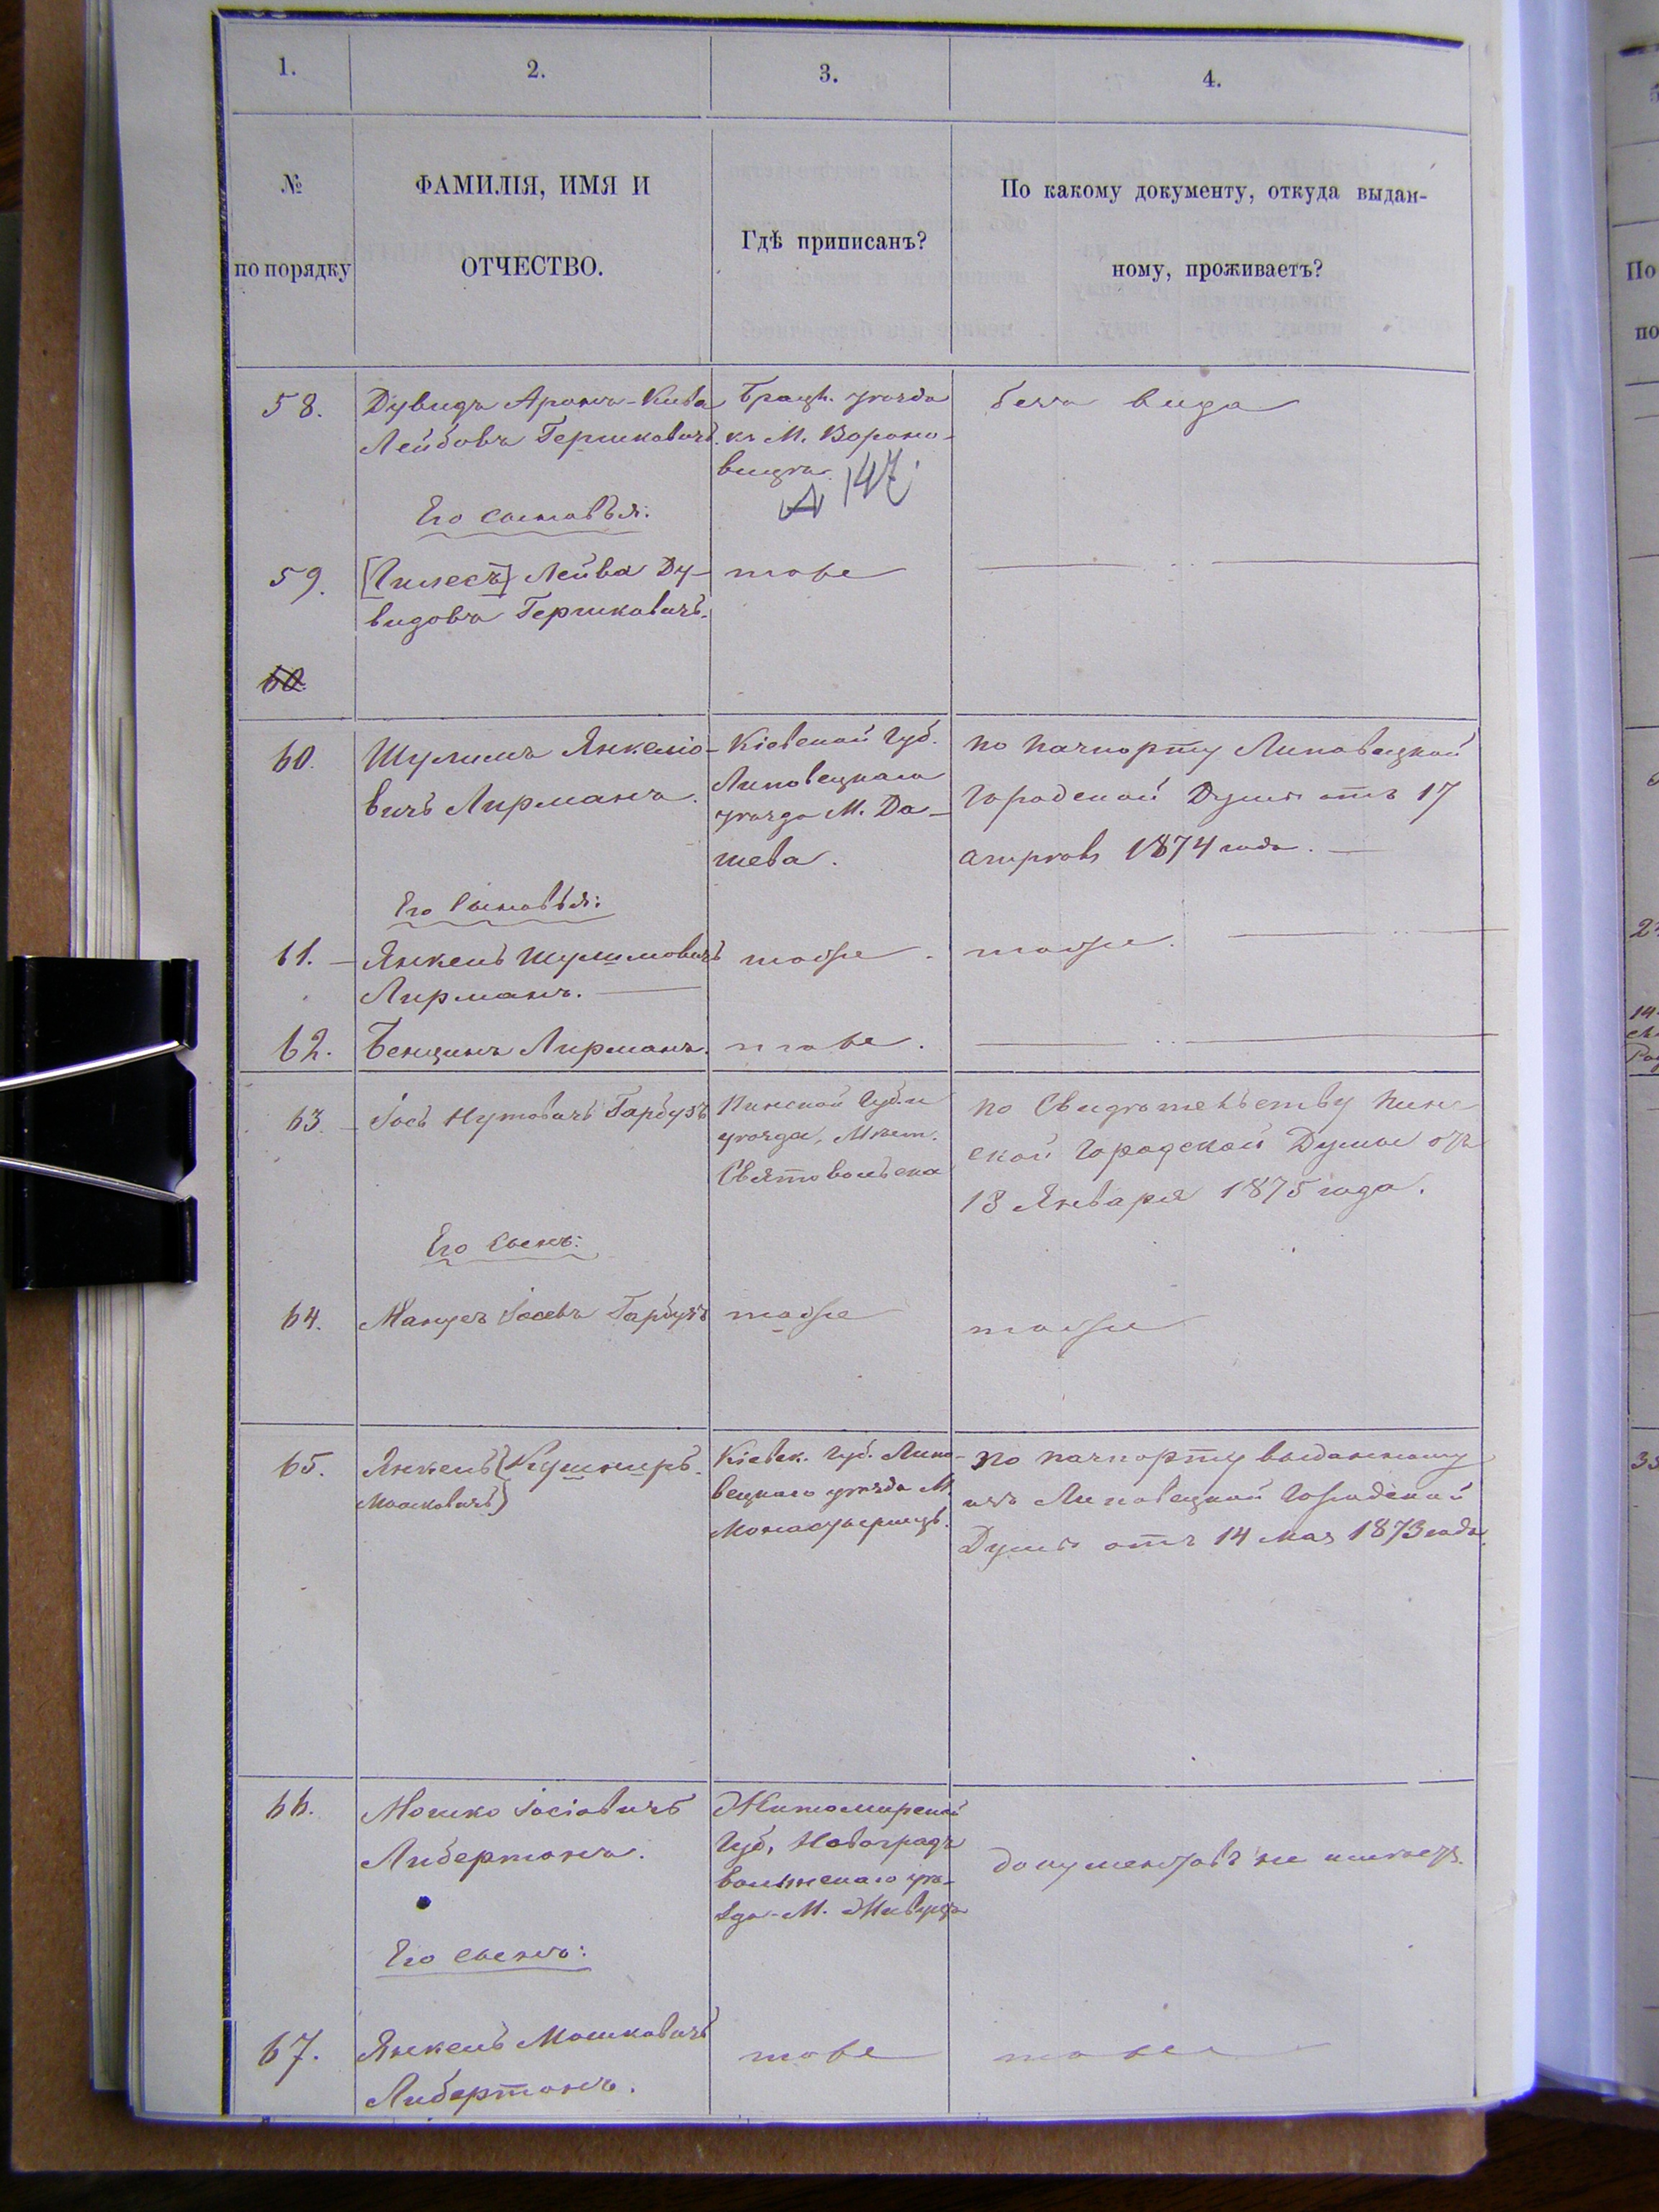 1.
2.
3.
4.
№
по порядку
ФАМИЛІЯ, ИМЯ И
ОТЧЕСТВО.
Гдѣ приписанъ?
По какому документу, откуда выдан-
ному, проживаетъ?
58.
Дувидъ Аронъ-Кива
Лейбовъ Гершковичъ.
Брацл. уѣзда
къ М. Вороно-
вицѣ.
147
безъ вида
Его сыновья:
59.
Лейва Ду-
видовъ Гершковичъ.
тоже
60.
60.
Шулимъ Янкеліо-
вичъ Лирманъ.
Кіевской Губ.
Липовецкаго
уѣзда М. Да-
шева.
по пачпорту Липовецкой
Городской Думы отъ 17
апрѣля 1874 года.
Его Сыновья:
61.
Янкель Шулимовичъ
Лирманъ.
тоже.
тоже.
62.
Бенціинъ Лирманъ.
тоже.
63.
Іось Нутовичъ Гарбузъ
Пинской Губ. и
уѣзда, Мѣст.
Святовольска
по Свидѣтельству Пин
ской Городской Думы отъ
18 Января 1875 года.
Его Сынъ:
64.
Манусъ Іосевъ Гарбузъ
тоже
тоже
65.
Янкель (Кушниръ.
Мошковичъ)
Кіевск. Губ. Липо-
вецкаго уѣзда М.
Монастырищъ.
по пачпорту выданному
изъ Липовецкой Городской
Думы отъ 14 мая 1873 года.
66.
Мошко Іосіовичъ
Либертонъ.
Житомирской
Губ, Новоградъ
волынскаго уѣ-
зда М.
документовъ не имѣетъ.
Его сынъ:
67.
Янкель Мошковичъ
Либертонъ.
тоже
тоже
По
по